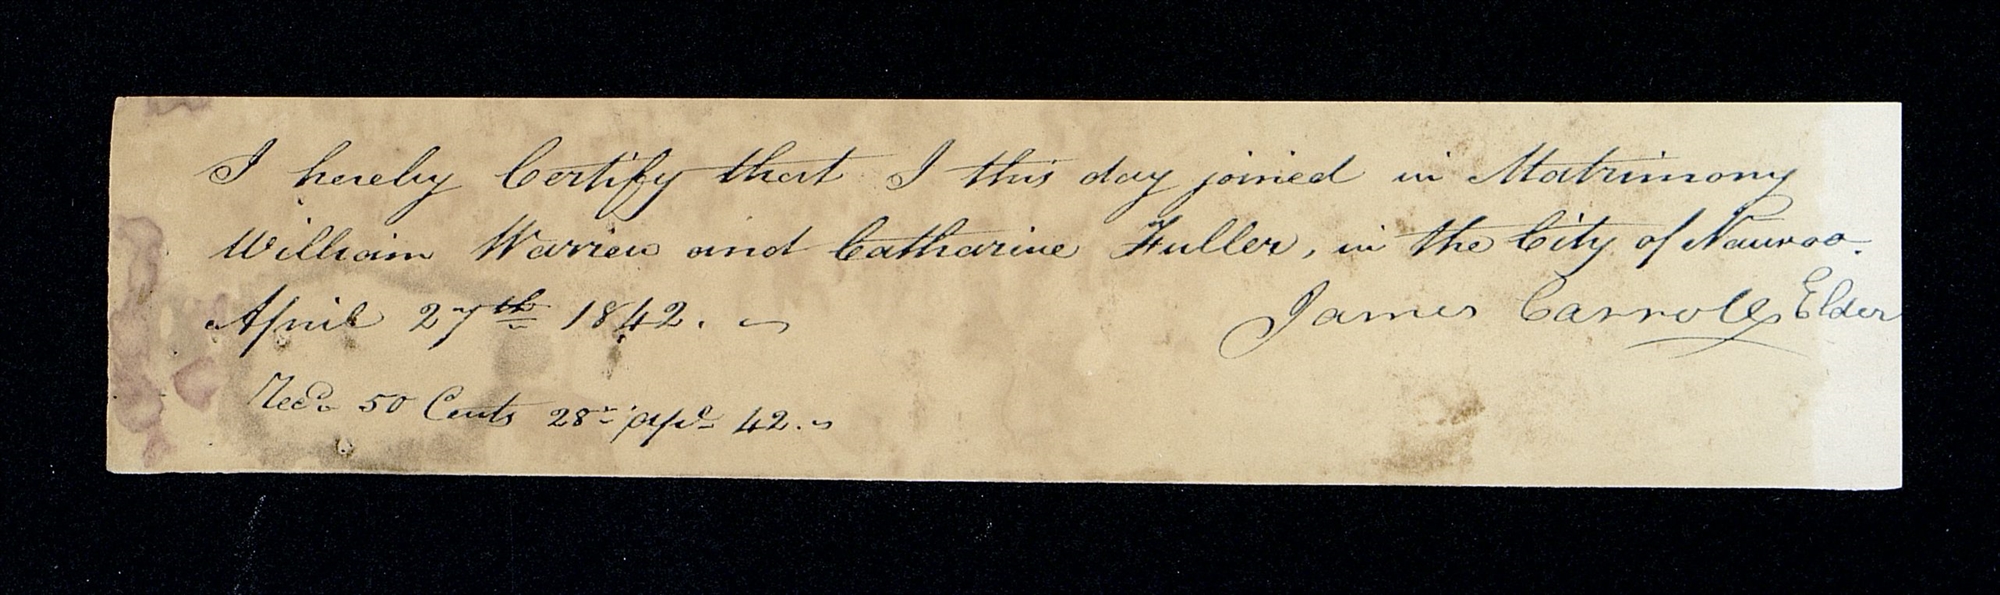 I hereby Certify that I this day joined in Matrimony
William Warren and Catharine Fuller, in the City of Nauvoo.
April 27th 1842.
James Carroll Elder
Recd. 50 Cents 28th Apl 42.